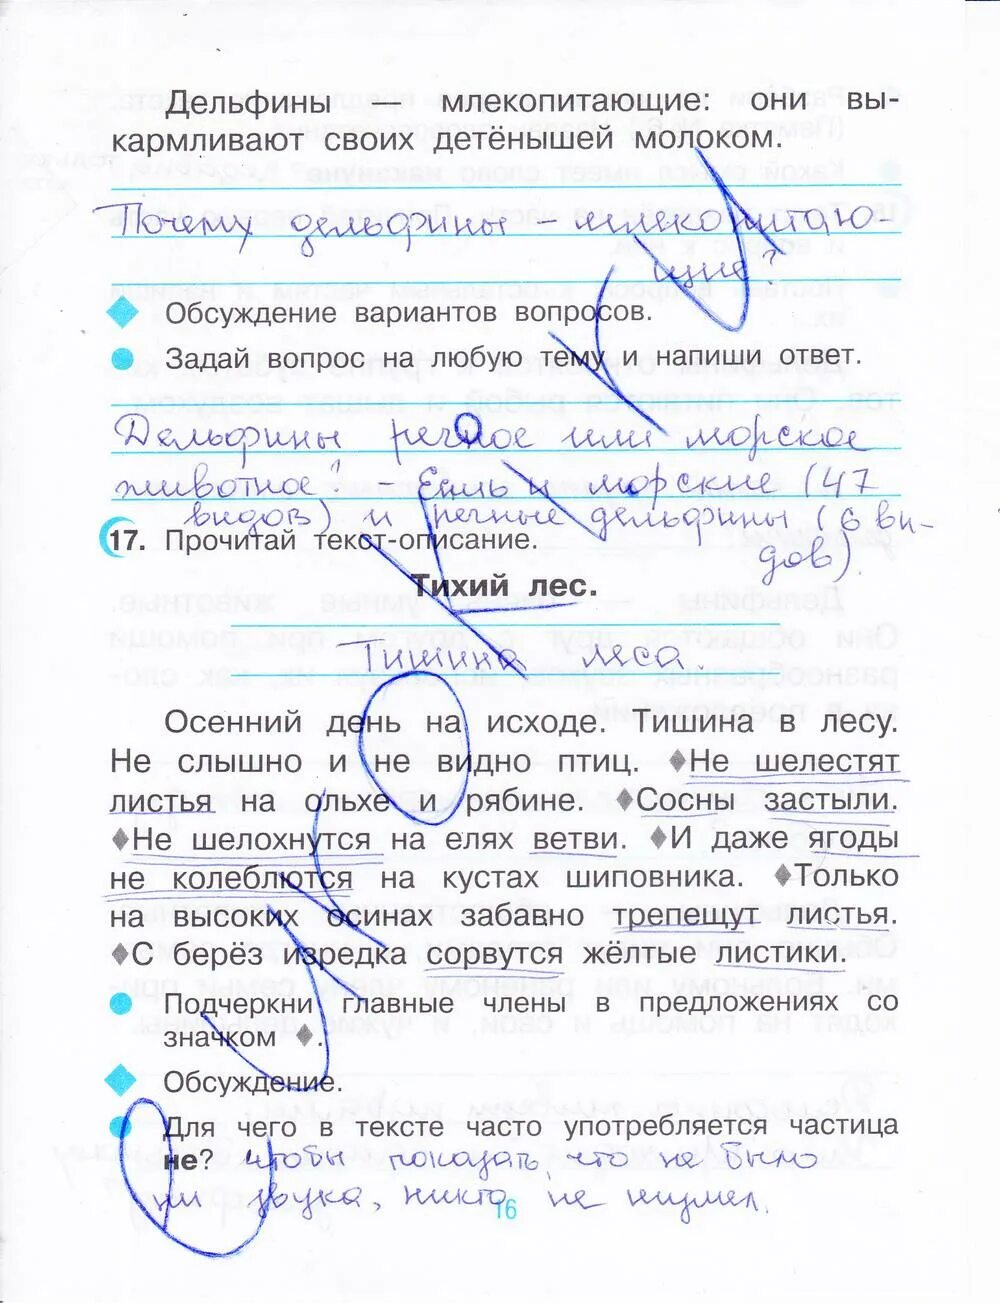 Дельфины — млекопитающие: они вы-
кармливают своих детёнышей молоком.
Почему дельфины – млекопитаю
щие?
Обсуждение вариантов вопросов.
Задай вопрос на любую тему и напиши ответ.
Дельфины речное или морское
животное? – Есть и морские (47
видов) и речные дельфины (6 ви-
дов).
17. Прочитай текст-описание.
Тихий лес.
Тишина леса.
Осенний день на исходе. Тишина в лесу.
Не слышно и не видно птиц. ♦Не шелестят
листья на ольхе и рябине. ♦Сосны застыли.
♦Не шелохнутся на елях ветви. ♦И даже ягоды
не колеблются на кустах шиповника. ♦Только
на высоких осинах забавно трепещут листья.
♦С берёз изредка сорвутся жёлтые листики.
Подчеркни главные члены в предложениях со
значком ♦.
Обсуждение.
Для чего в тексте часто употребляется частица
не? Чтобы показать, что не было
ни звука, никто не шумел.
16